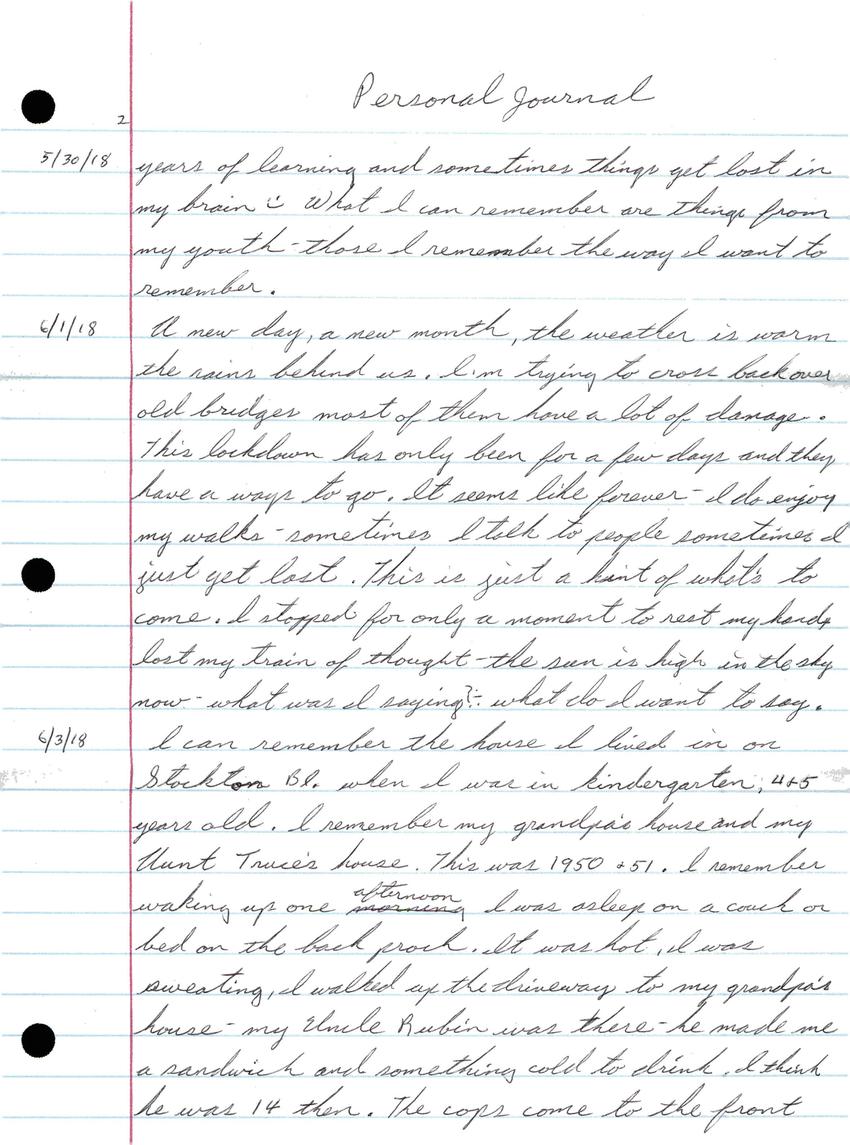 Personal Journal
2
5/30/18 years of learning and sometimes things get lost in
my brain :- What I can remember are things from
my youth - those I remember the way I want to
remember.
6/1/18 A new day, a new month, the weather is warm
the rains behind us. I'm trying to cross back over
old bridges most of them have a lot of damage.
This lockdown has only been for a few days and they
have a ways to go. It seems like forever - I do enjoy
my walks - sometimes I talk to people sometimes I
just get lost. This is just a hint of what's to
come. I stopped for only a moment to rest my hand &
lost my train of thought - the sun is high in the sky
now - what was I saying? :- what do I want to say.
6/3/18 I can remember the house I lived in on
Stockton Bl. when I was in kindergarten, 4+5
years old. I remember my grandpa's house and my
Aunt Truce's house. This was 1950 + 51. I remember
afternoon
waking up one morning I was asleep on a couch or
bed on the back proch. It was hot, I was
sweating, I walked up the driveway to my grandpa's
house - my Uncle Rubin was there - he made me
a sandwich and something cold to drink. I think
he was 14 then. The cops come to the front